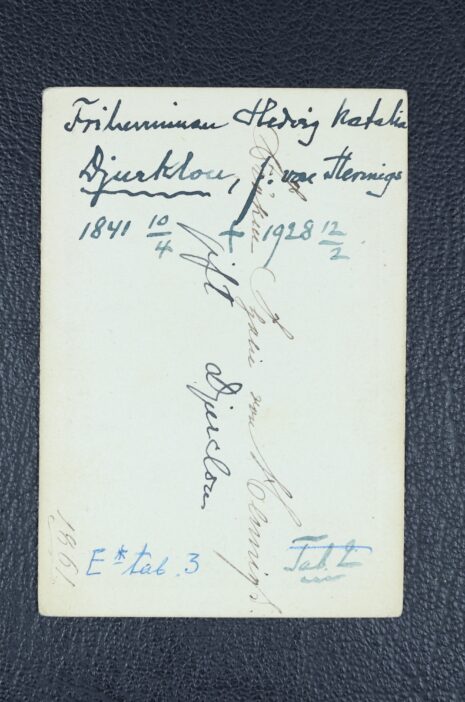 Friherrinnan Hedvig Natalia
Djurklou, f. von Hennigs
1841 10/4 + 1928 12/2
von Hennigs.
gift Djurclou
1861
E* tab. 3
Tab. 2